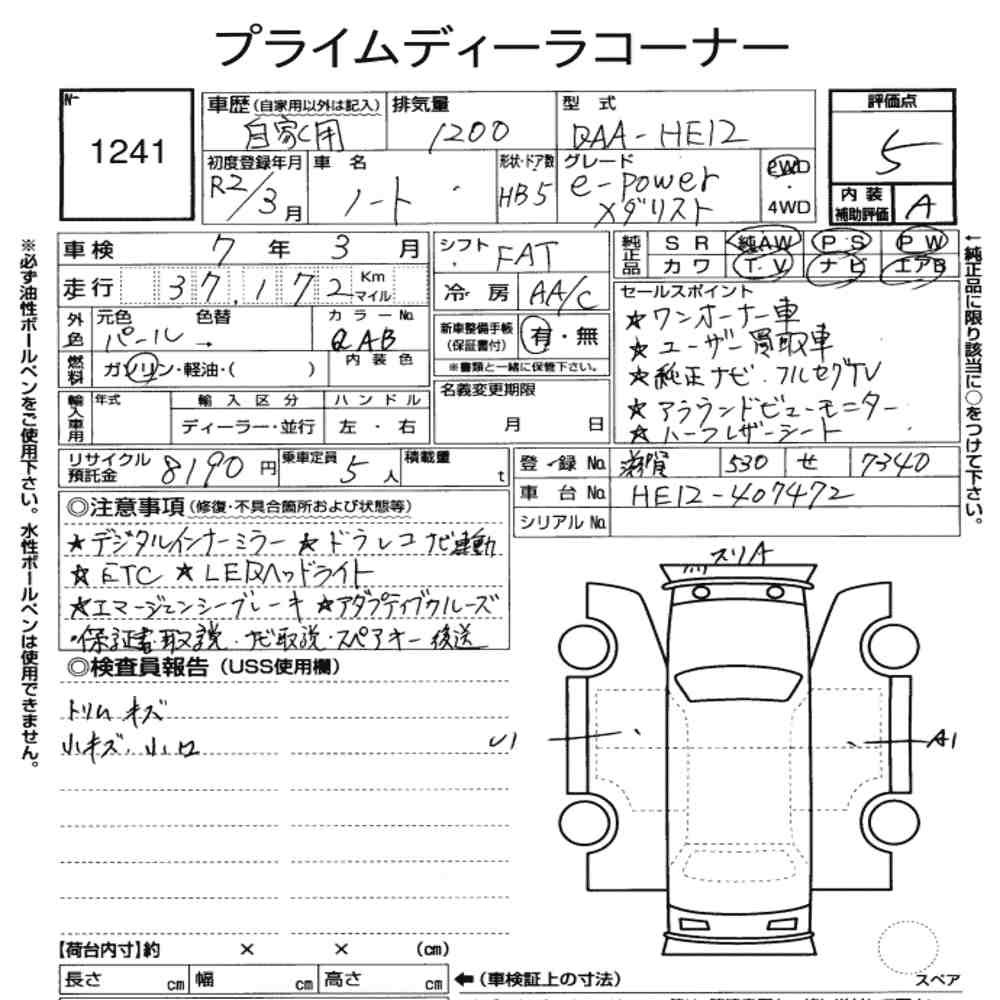 プライムディーラコーナー
№
1241
車歴(自家用以外は記入)
自家用
排気量
1200
型式
DAA-HE12
評価点
5
初度登録年月
R2/3月
車名
ノート
形状・ドア数
HB5
グレード
e-power
メダリスト
2WD
・
4WD
内装
補助評価
A
車検 7年3月
走行 37,172 Km
マイル
外色
元色 色替
パール →
カラーNo.
QAB
燃料
ガソリン・軽油・( )
内装色
輸入車用
年式
輸入区分
ディーラー・並行
ハンドル
左・右
シフト FAT
冷房 AA/C
新車整備手帳
(保証書付)
有・無
※書類と一緒に保管下さい。
名義変更期限
月 日
純正品
SR 純AW PS PW
カワ T.V ナビ エアB
セールスポイント
☆ワンオーナー車
☆ユーザー買取車
☆純正ナビ.フルセグTV
☆アラウンドビューモニター
☆ハーフレザーシート
リサイクル
預託金
8190円
乗車定員 5人
積載量 t
登録No. 滋賀 530 せ 7340
車台No. HE12-407472
シリアルNo.
◎注意事項(修復・不具合箇所および状態等)
☆デジタルインナーミラー ☆ドラレコナビ連動
☆ETC ☆LEDヘッドライト
☆エマージェンシーブレーキ ☆アダプティブクルーズ
・保証書・取説・ナビ取説・スペアキー後送
◎検査員報告(USS使用欄)
トリムキズ
小キズ、小凹
スリA
U1
A1
スペア
【荷台内寸】約 × × (cm)
長さ cm 幅 cm 高さ cm
←(車検証上の寸法)
※必ず油性ボールペンをご使用下さい。水性ボールペンは使用できません。
←純正品に限り該当に○をつけて下さい。